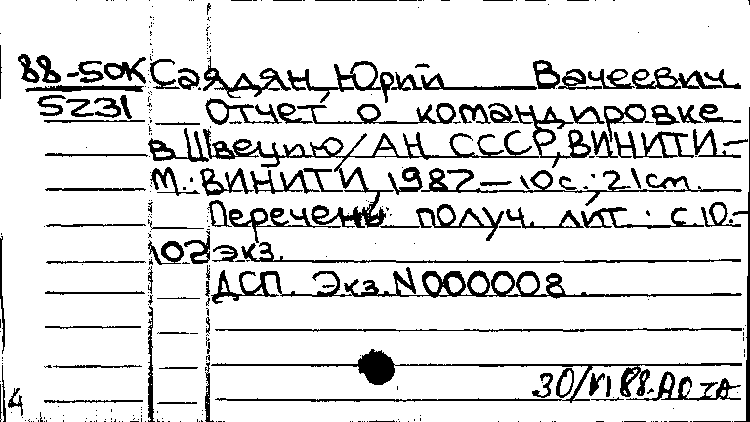 88-5ОК Саядян, Юрий Вачеевич
5231 Отчет о командировке
в Швецию/АН СССР, ВИНИТИ.-
М.: ВИНИТИ, 1987.-10с.; 21cm.
Перечень получ. лит.: с.10.-
102 экз.
ДСП. Экз.N000008.
30/VI 88.
4